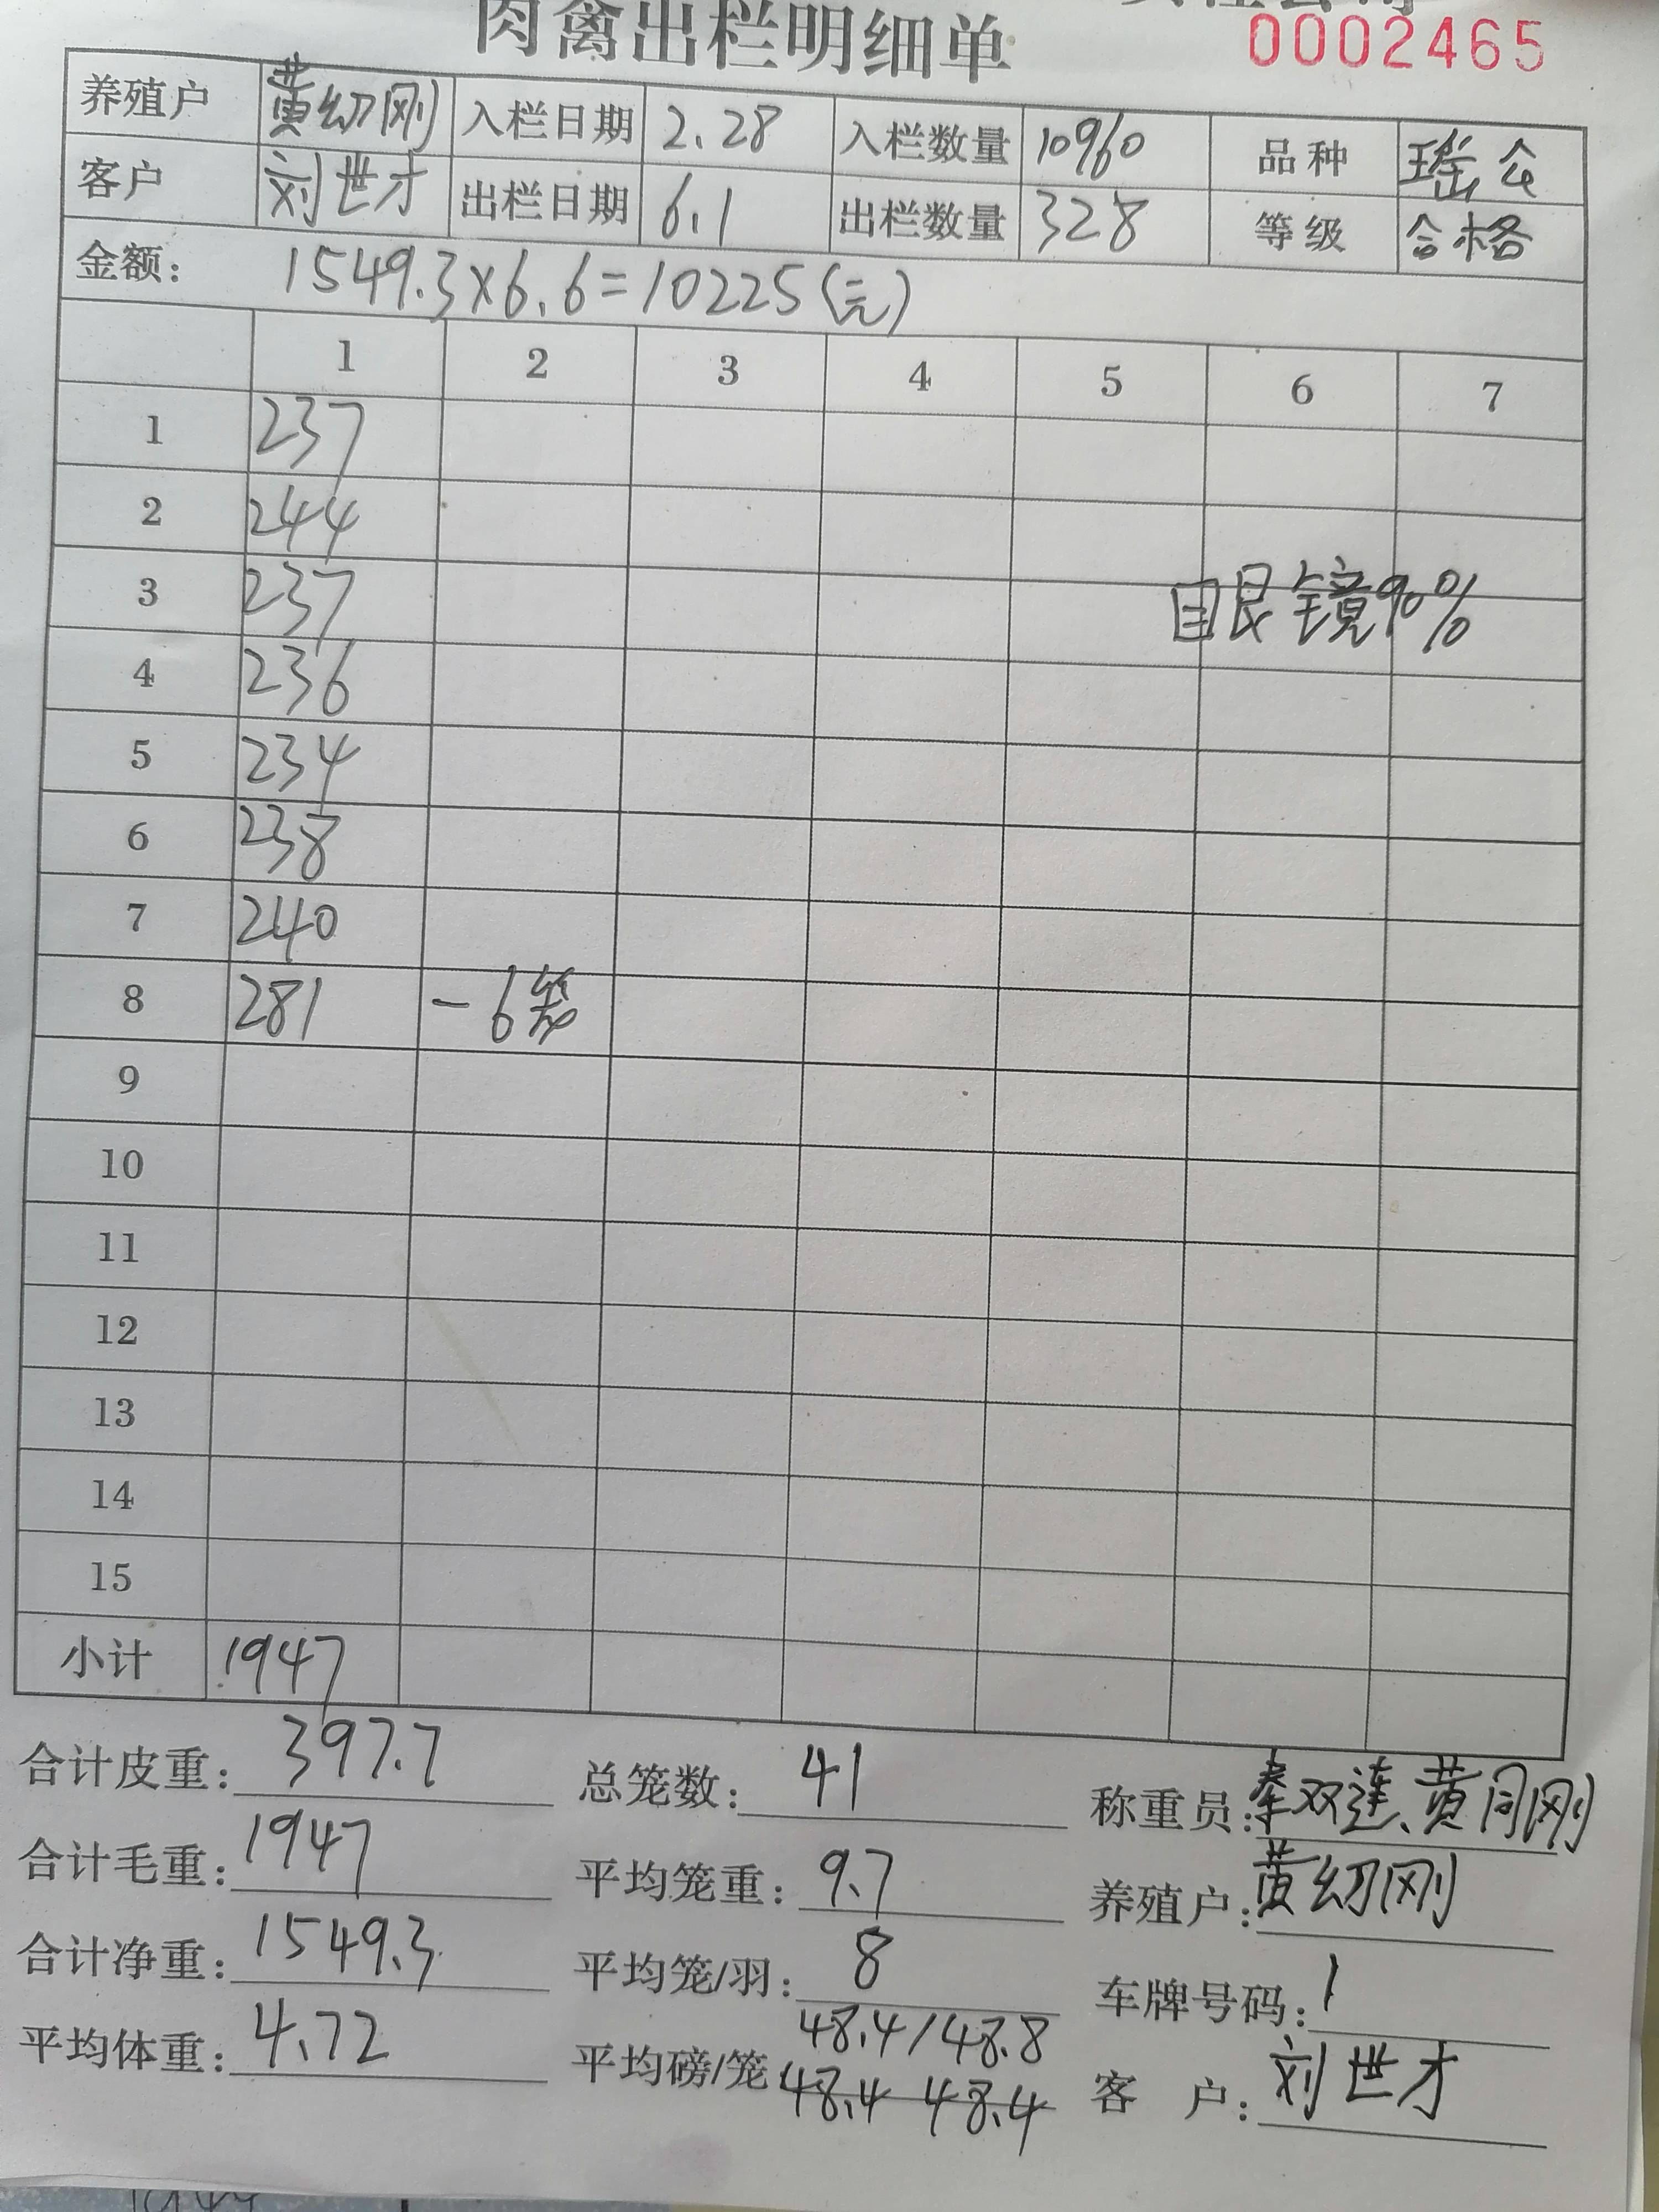 肉禽出栏明细单
0002465
养殖户 黄幼刚 入栏日期 2.28 入栏数量 10960 品种 瑶公
客户 刘世才 出栏日期 6.1 出栏数量 328 等级 合格
金额: 1549.3×6.6=10225(元)
1 2 3 4 5 6 7
1 237
2 244
3 237 眼镜90%
4 236
5 234
6 238
7 240
8 281 -6笼
9
10
11
12
13
14
15
小计 1947
合计皮重: 397.7 总笼数: 41 称重员: 秦双连、黄同刚
合计毛重: 1947 平均笼重: 9.7 养殖户: 黄幼刚
合计净重: 1549.3 平均笼/羽: 8 车牌号码: 1
48.4/48.8
平均体重: 4.72 平均磅/笼 48.4 48.4 客户: 刘世才